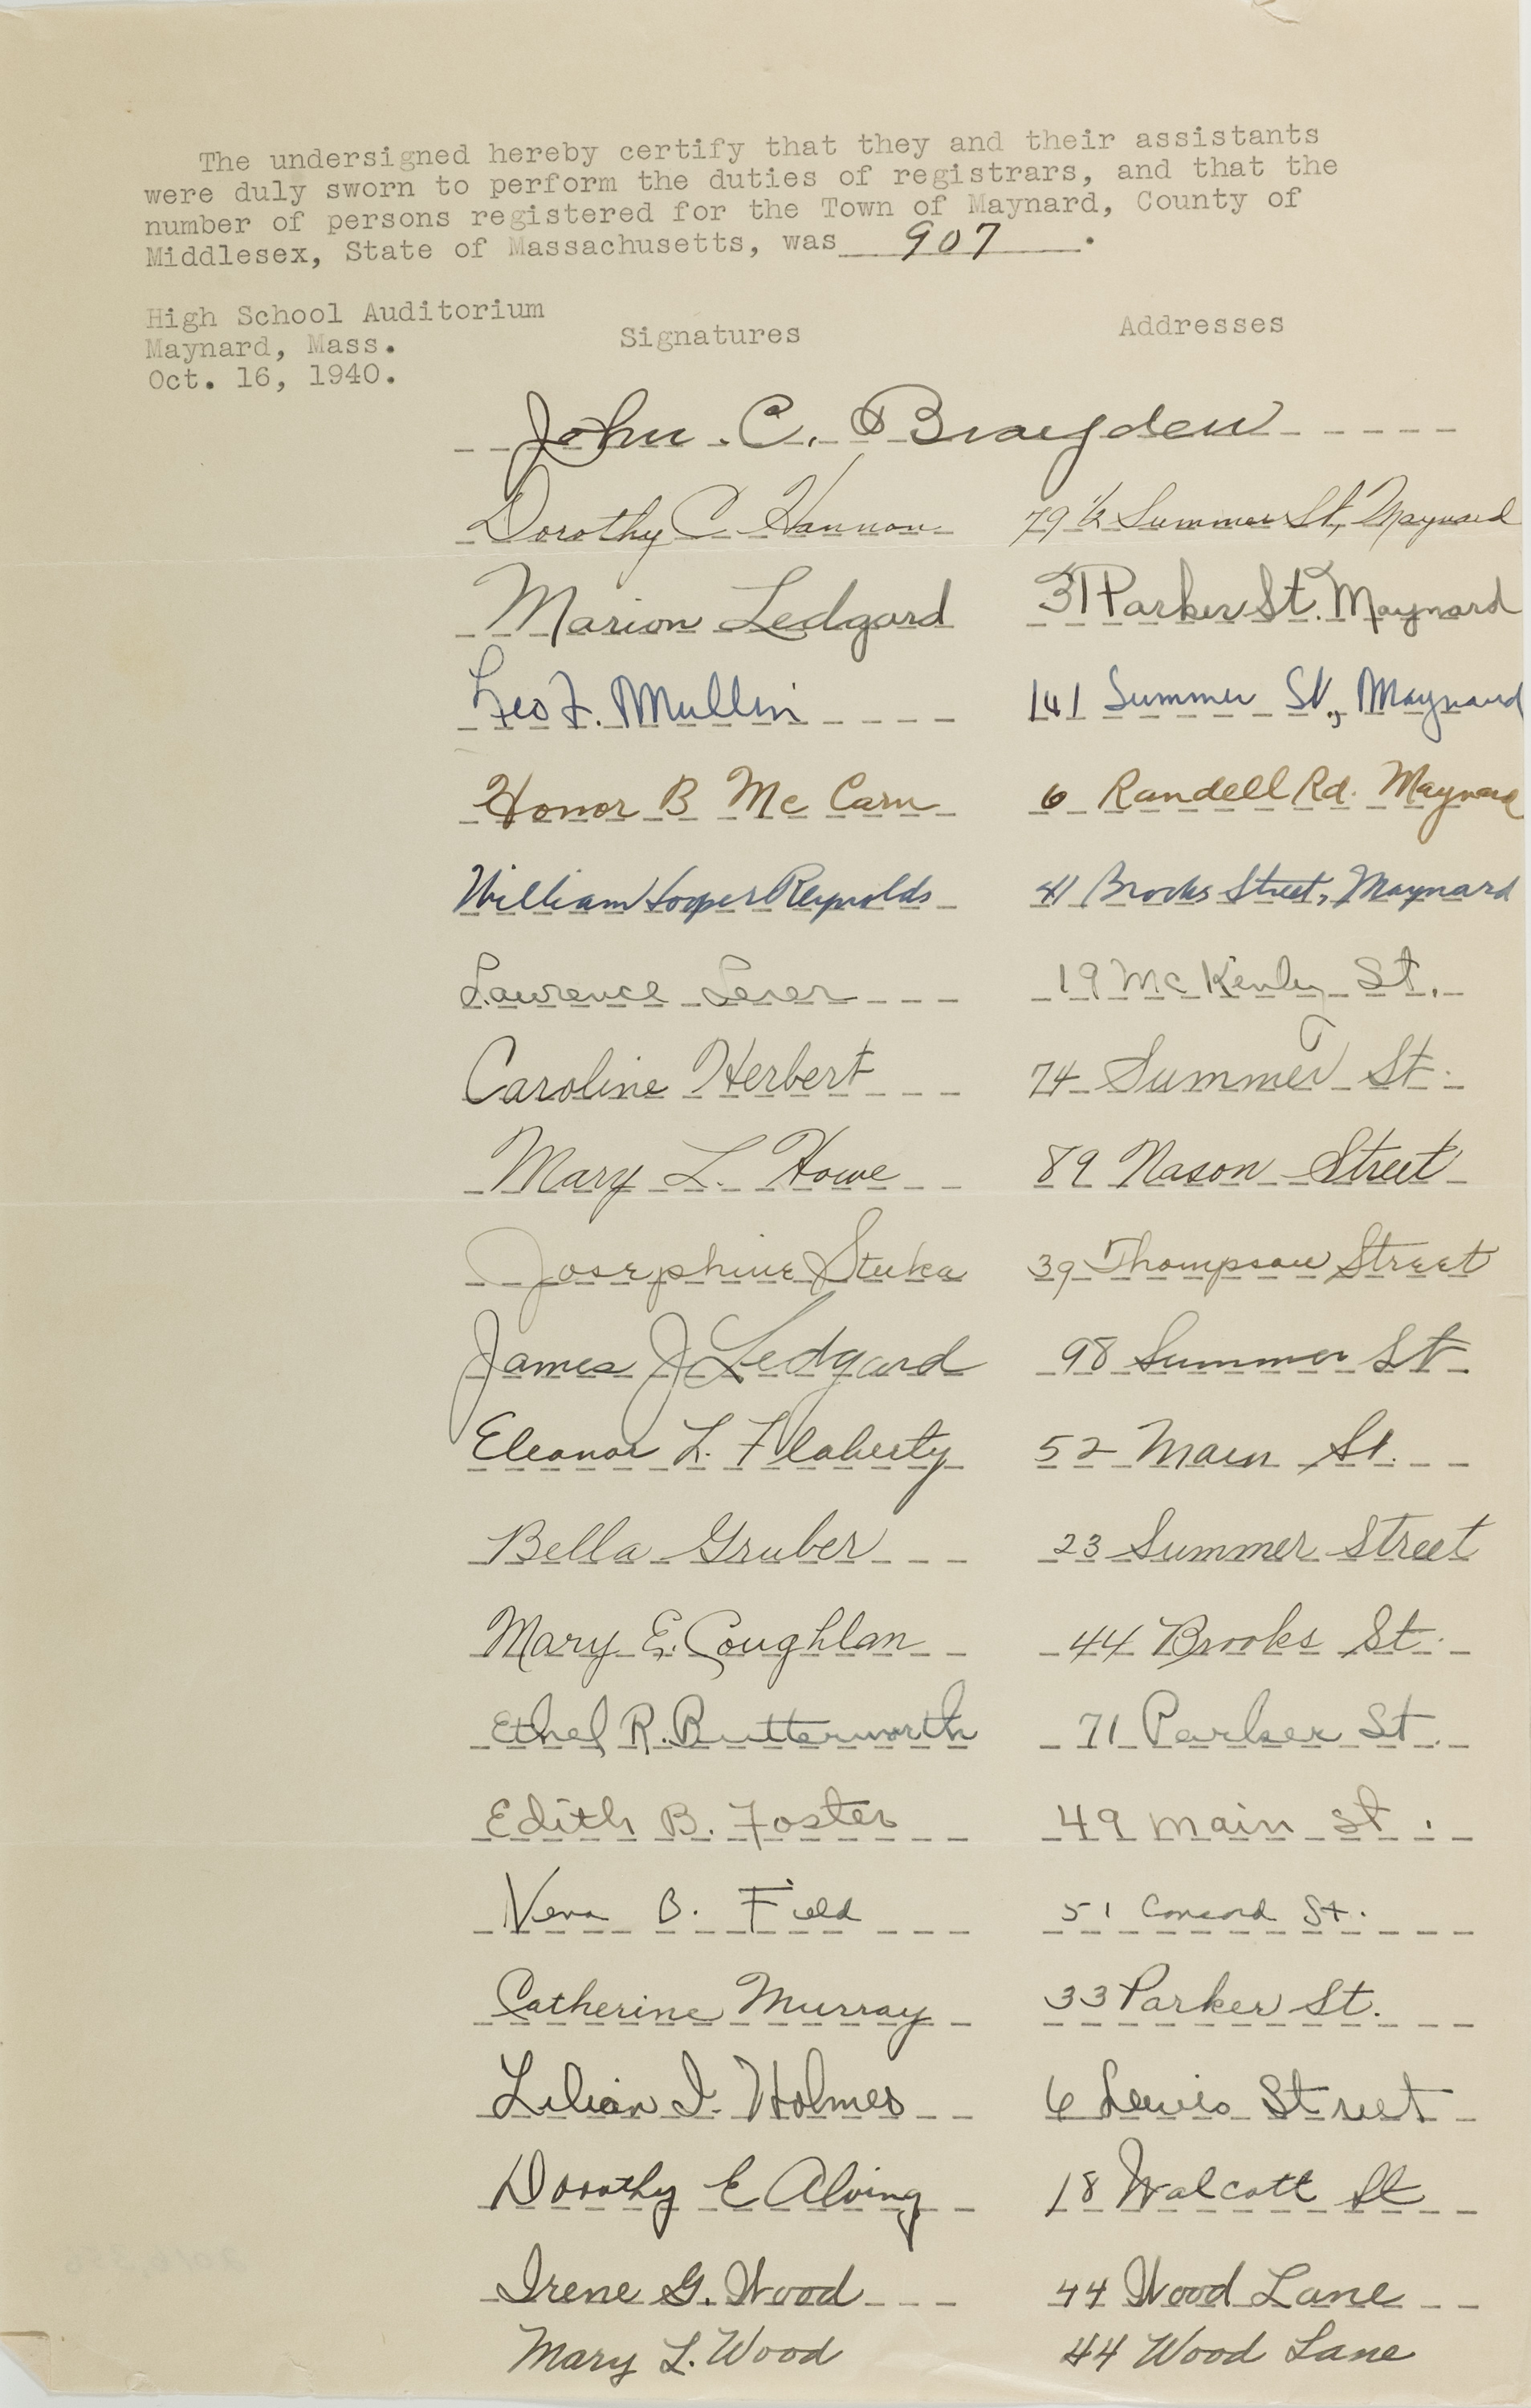 The undersigned hereby certify that they and their assistants
were duly sworn to perform the duties of registrars, and that the
number of persons registered for the Town of Maynard, County of
Middlesex, State of Massachusetts, was 907.
High School Auditorium
Maynard, Mass.
Oct. 16, 1940.
Signatures Addresses
John C. Brayden
Dorothy C. Hannon 79 1/2 Summer St., Maynard
Marion Ledgard 31 Parker St. Maynard
Leo F. Mullin 141 Summer St., Maynard
Honor B Mc Carn 6 Randell Rd. Maynard
William Hooper Reynolds 41 Brooks Street, Maynard
Lawrence 19 McKenly St.
Caroline Herbert 74 Summer St.
Mary L. Howe 89 Nason Street
Josephine Stuka 39 Thompson Street
James J Ledgard 98 Summer St
Eleanor L. Flaherty 52 Main St.
Bella Gruber 23 Summer Street
Mary E. Coughlan 44 Brooks St.
Ethel R. Butterworth 71 Parker St.
Edith B. Foster 49 Main St.
Vera B. Field 51 Concord St.
Catherine Murray 33 Parker St.
Lilian I. Holmes 6 Lewis Street
Dorothy E Alving 18 Walcott St
Irene G. Wood 44 Wood Lane
Mary L. Wood 44 Wood Lane